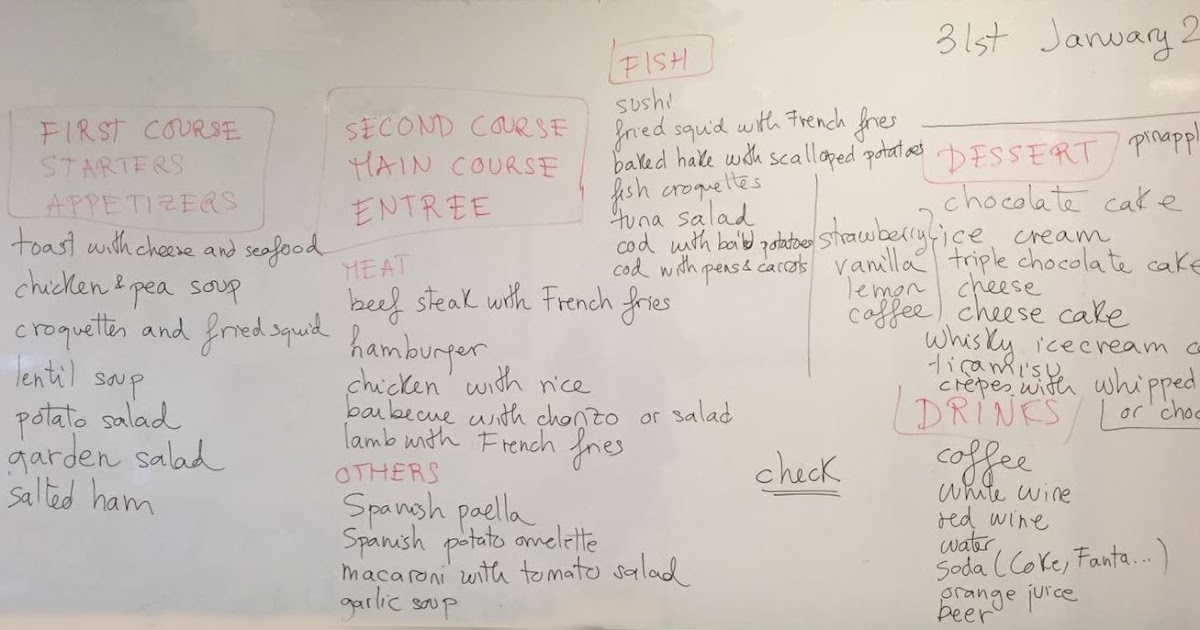 31st January 2
FIRST COURSE
STARTERS
APPETIZERS
toast with cheese and seafood
chicken & pea soup
croquettes and fried squid
lentil soup
potato salad
garden salad
salted ham
SECOND COURSE
MAIN COURSE
ENTREE
MEAT
beef steak with French fries
hamburger
chicken with rice
barbecue with chorizo or salad
lamb with French fries
OTHERS
Spanish paella
Spanish potato omelette
macaroni with tomato salad
garlic soup
FISH
sushi
fried squid with French fries
baked hake with scalloped potatoes
fish croquettes
tuna salad
cod with potatoes
cod with peas & carrots
check
DESSERT
pinappl
chocolate cake
ice cream
strawberry
vanilla
lemon
coffee
triple chocolate cake
cheese
cheese cake
whisky icecream
tiramisu
crèpes with whipped
or choc
DRINKS
coffee
white wine
red wine
water
soda (Coke, Fanta...)
orange juice
beer